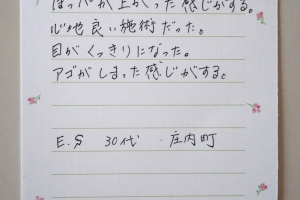 ほっぺが上がった感じがする。
心地良い施術だった。
目がくっきりになった。
アゴがしまった感じがする。
E.S 30代 . 庄内町